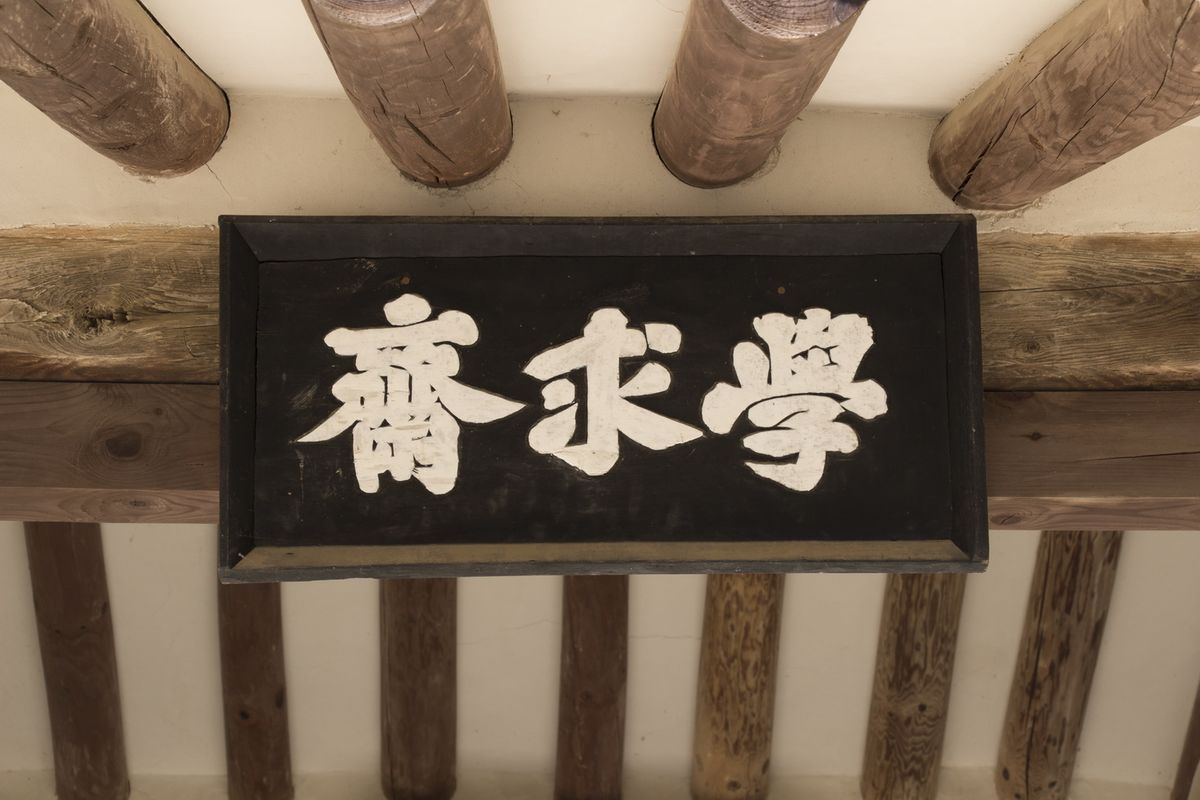 學求齋